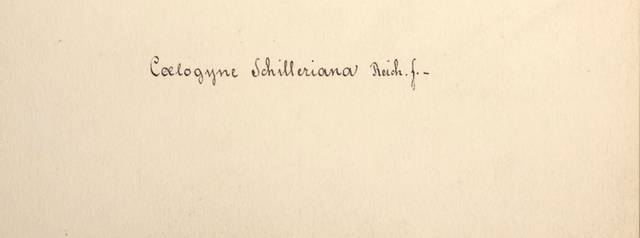 Cœlogyne Schilleriana Reich. f. -